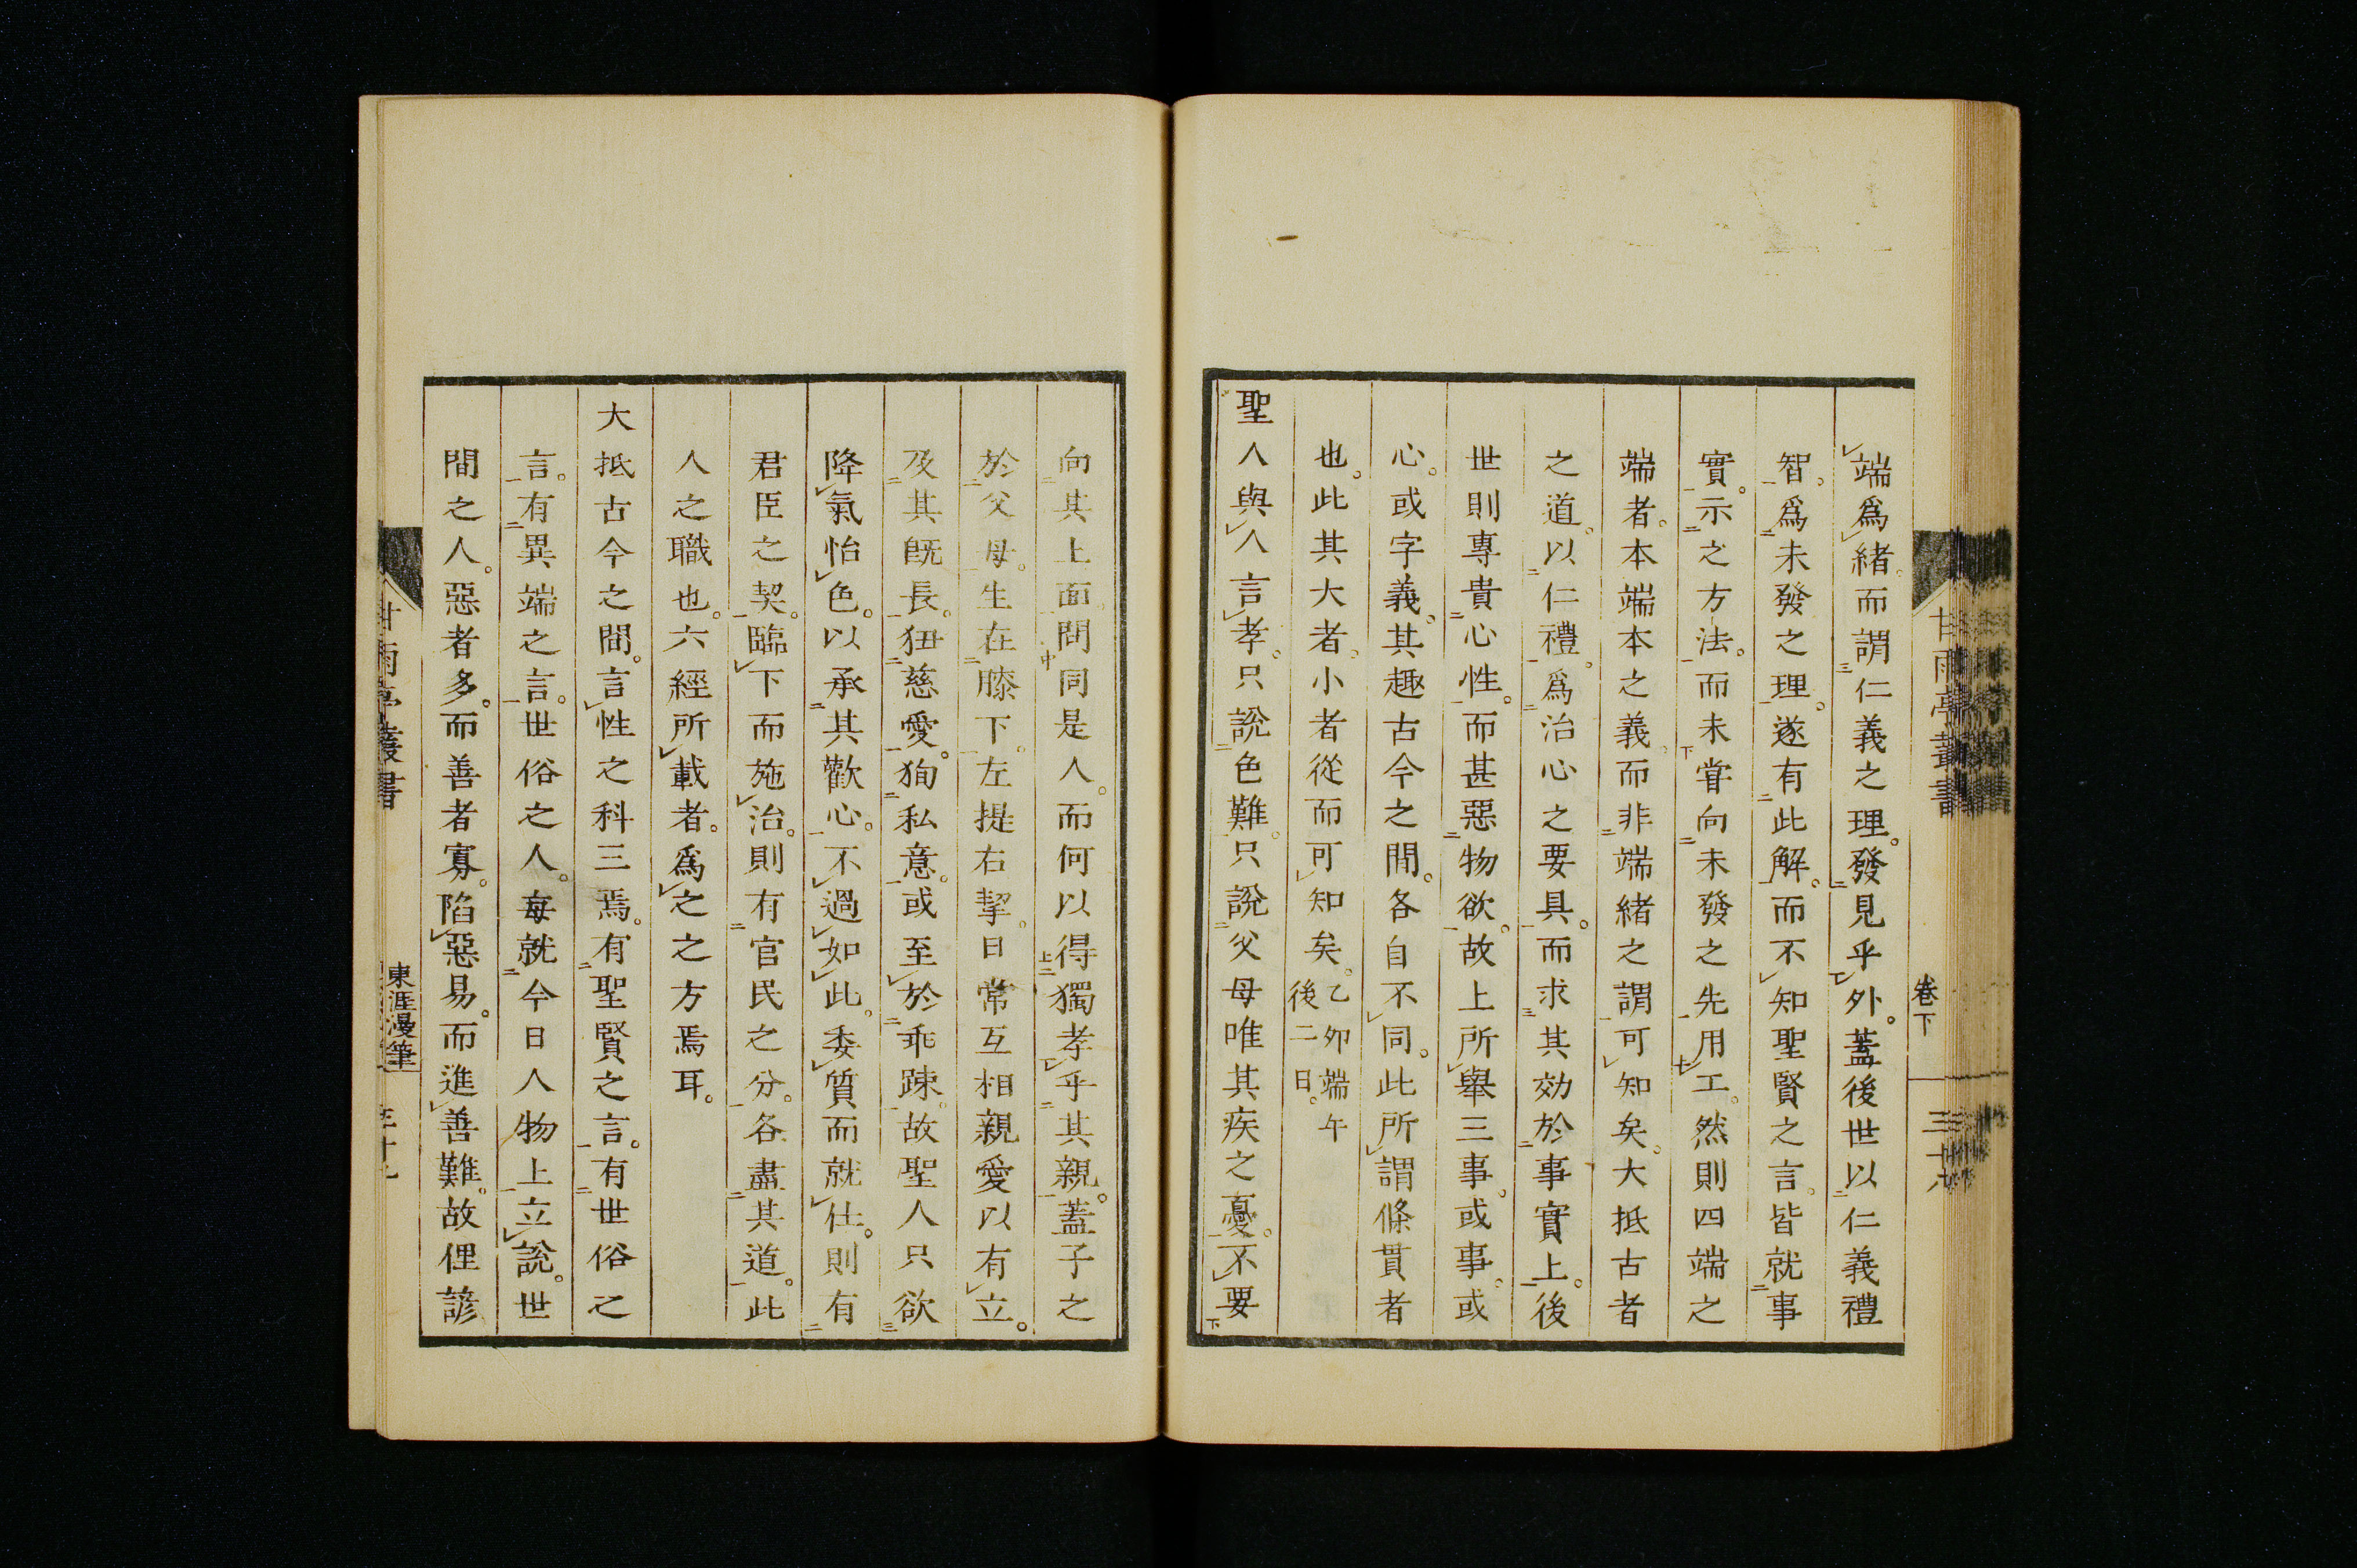 甘雨亭叢書
卷下
端爲緒。而謂仁義之理。發見乎外。蓋後世以仁義禮
智。爲未發之理。遂有此解。而不知聖賢之言。皆就事
實。示之方法。而未甞向未發之先用工。然則四端之
端者。本端本之義。而非端緒之謂可知矣。大抵古者
之道。以仁禮。爲治心之要具。而求其効於事實上。後
世則專貴心性。而甚惡物欲。故上所舉三事。或事。或
心。或字義。其趣古今之間。各自不同。此所謂條貫者
也。此其大者。小者從而可知矣。乙夘端午
後二日。
聖人與人言孝。只說色難。只說父母唯其疾之憂。不要
向其上面問同是人。而何以得獨孝乎其親。蓋子之
於父母。生在膝下。左提右挈。日常互相親愛以有立。
及其既長。狃慈愛。狥私意。或至於乖踈。故聖人只欲
降氣怡色。以承其歡心。不過如此。委質而就仕。則有
君臣之契。臨下而施治。則有官民之分。各盡其道。此
人之職也。六經所載者。爲之之方焉耳。
大抵古今之間。言性之科三焉。有聖賢之言。有世俗之
言。有異端之言。世俗之人。每就今日人物上立說。世
間之人。惡者多。而善者寡。陷惡易。而進善難。故俚諺
東涯漫筆